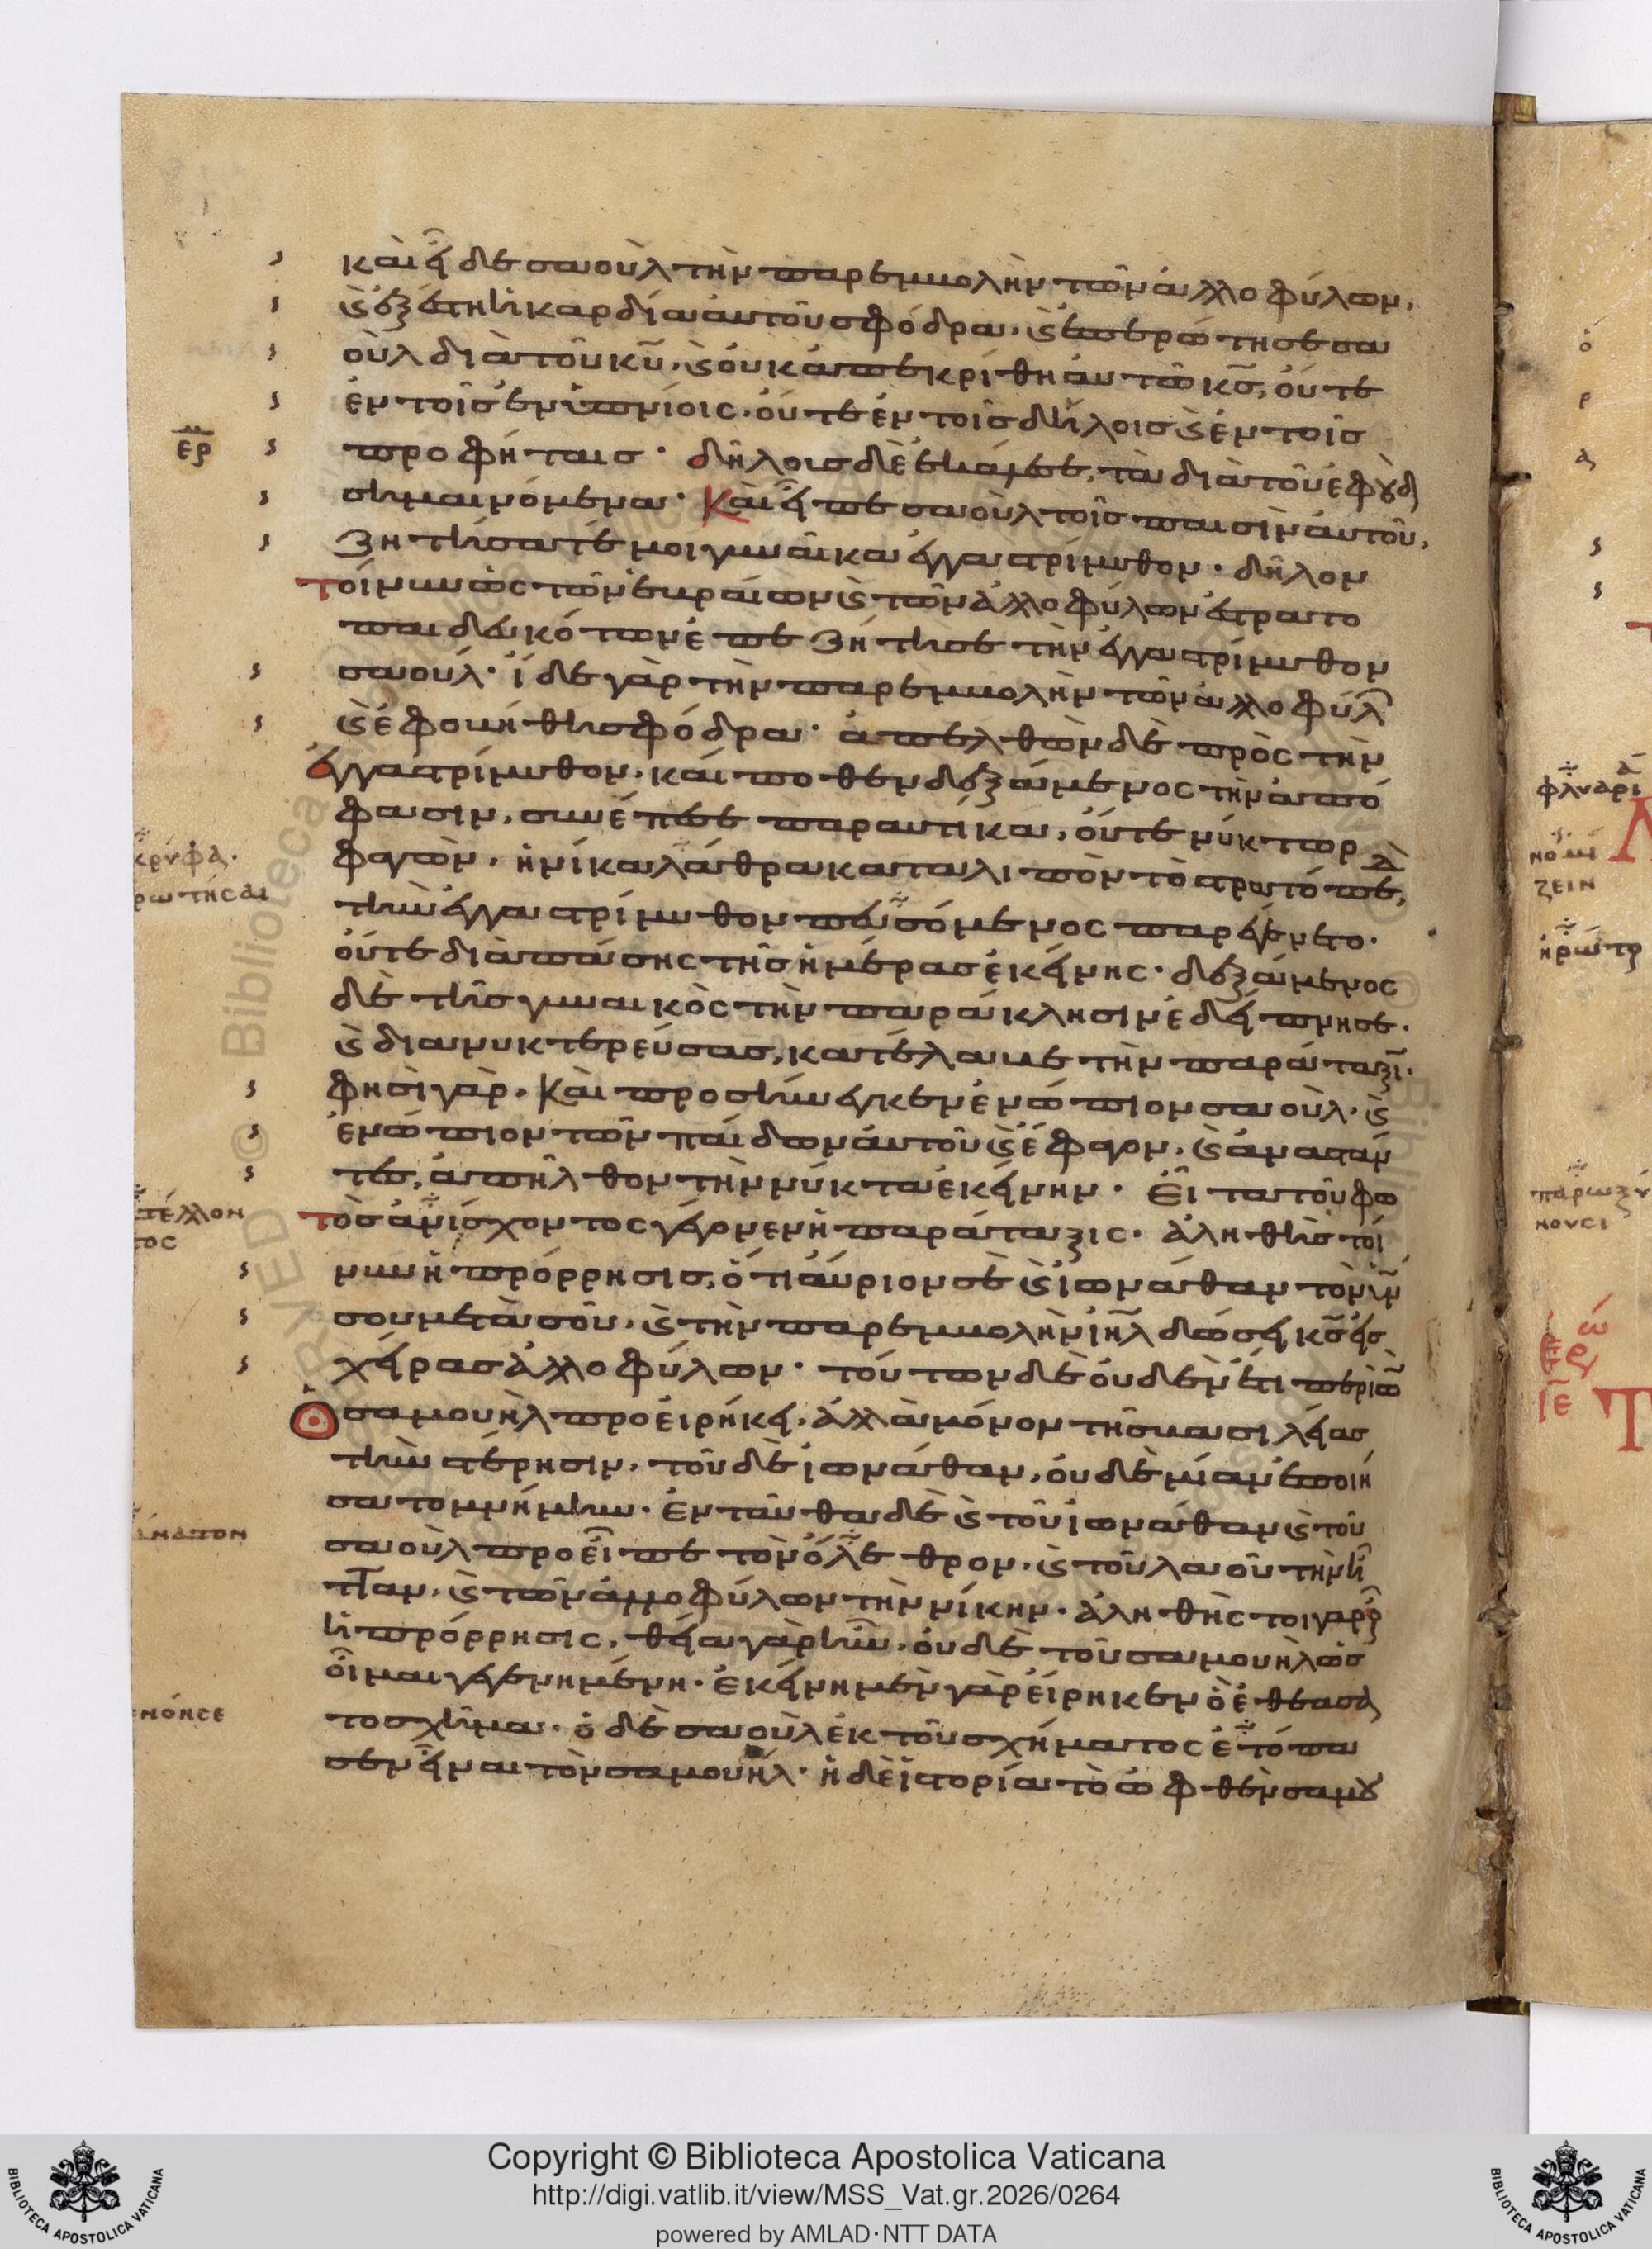 καὶ εἶδε σαοὺλ τὴν παρεμβολὴν τῶν ἀλλοφύλων,
ϗ ἐξέστη ἡ καρδία αὐτοῦ σφόδρα. ϗ ἐπερώτησε σα
οὺλ διὰ τοῦ κυ̅. ϗ οὐκ ἀπεκρίθη αὐτῶ κς̅, οὔτε
ἐν τοῖς ἐνυπνίοις. οὔτε ἐν τοῖς δήλοις ϗ ἐν τοῖς
προφήταις· δήλοις δὲ ἐκάλεσε, τὰ διὰ τοῦ ἐφουδ
σημαινόμενα· Καὶ εἶπε σαοὺλ τοῖς παισὶν αὐτοῦ,
Ζητήσατέ μοι γυναῖκα ἐγγαστρίμυθον· δῆλον
τοίνυν ὡς τῶν ἑβραίων ϗ τῶν ἀλλοφύλων ἐστρατο
πεδευκότων ἐπεζήτησε τὴν ἐγγαστρίμυθον
σαούλ· ἴδε γὰρ τὴν παρεμβολὴν τῶν ἀλλοφύλ
ϗ ἐφοβήθη σφόδρα· ἀπελθὼν δὲ πρὸς τὴν
ἐγγαστρίμυθον. κακεῖθεν δεξάμενος τὴν ἀπό
φασιν, συνέπεσε παραυτίκα, οὔτε νύκτωρ
φαγὼν. ἡνίκα λάθρα καταλιπὼν τὸ στρατόπε,
τὴν ἐγγαστρίμυθον πευσόμενος παρεγένετο.
οὔτε διὰ πάσης τῆς ἡμέρας ἐκείνης· δεξάμενος
δὲ τῆς γυναικὸς τὴν παράκλησιν ἐδείπνησε.
ϗ διανυκτερεύσας, κατέλαβε τὴν παράταξι.
φησὶ γὰρ. Καὶ προσήνεγκεν ἐνώπιον σαοὺλ. ϗ
ἐνώπιον τῶν παίδων αὐτοῦ ϗ ἔφαγον, ϗ ἀναστάν
τες, ἀπῆλθον τὴν νύκτα ἐκείνην· Εἶτα τοῦ φω
τὸς ἀνίσχοντος γέγονεν ἡ παράταξις· ἀληθὴς τοί
νυν ἡ πρόρρησις, ὅτι αὔριον σὲ ϗ ἰωνάθαν τὸν υἱόν
σου μετὰ σοῦ. ϗ τὴν παρεμβολὴν ιηλ̅ δώσει κς̅ εἰς
χεῖρας ἀλλοφύλων· τούτων δὲ οὐδὲν ἔτι περιὼν
ὁ σαμουὴλ προειρήκει. ἀλλὰ μόνον τῆς βασιλείας
τὴν στέρησιν. τοῦ δὲ ἰωνάθαν, οὐδὲ μίαν ἐποιή
σατο μνήμην. ἐνταῦθα δὲ ϗ τοῦ ἰωνάθαν ϗ τοῦ
σαοὺλ προεῖπε τὸν ὄλεθρον. ϗ τοῦ λαοῦ τὴν ἧ
τταν. ϗ τῶν ἀλλοφύλων τὴν νίκην. ἀληθὴς τοιγαρ
ἡ πρόρρησις, θεία γὰρ ἦν. οὐδὲ τοῦ σαμουὴλ ὡς
οἶμαι γεγενημένη. ἐκείνη μὲν γὰρ εἴρηκεν ὃ ἐθεάσα
το σχῆμα. ὁ δὲ σαοὺλ ἐκ τοῦ σχήματος ἐτόπα
σεν εἶναι τὸν σαμουήλ. ἡ δὲ ἱστορία τὸ ὀφθὲν σαμου
ερ
κρυφᾶ.
ρωτῆσαι
τέλλον
τος
νόησε
φλυαρί
νομί
ζειν
ἠρώτ
παρωξύ
νουσι